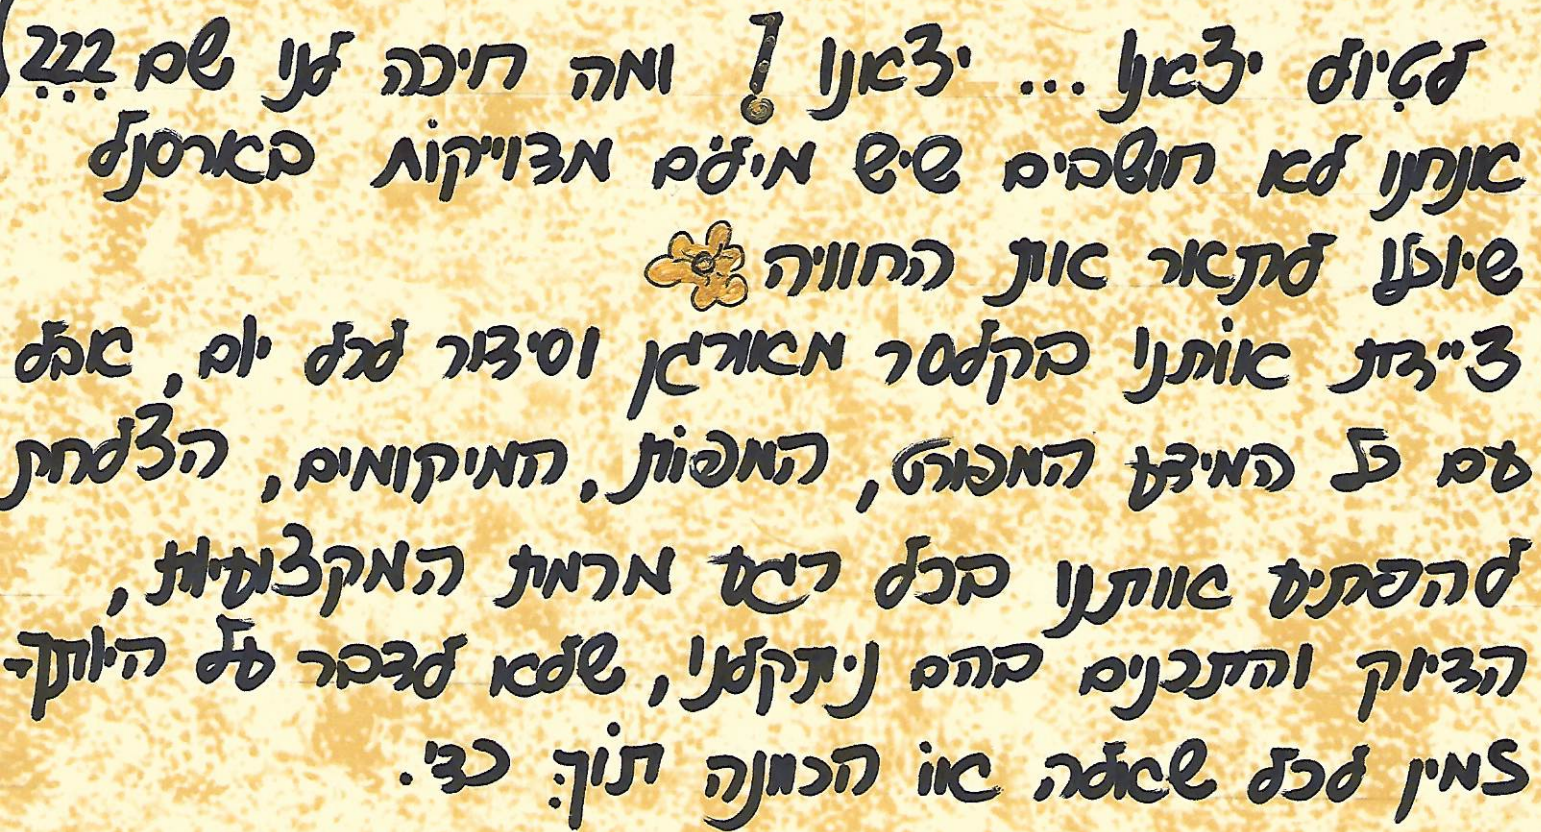 לטיול יצאנו ... יצאנו! ומה חיכה לנו שם ???
אנחנו לא חושבים שיש מילים מדוייקות בארסנל
שיוכלו לתאר את החוויה
ציידת אותנו בקלסר מאורגן וסידור לכל יום, אבל
עם כל המידע המפורט, המפות, המיקומים, הצלחת
להפתיע אותנו בכל רגע מרמת המקצועיות,
הדיוק והתכנים בהם ניתקלנו, שלא לדבר על היותך
זמין לכל שאלה או הכוונה תוך כדי.